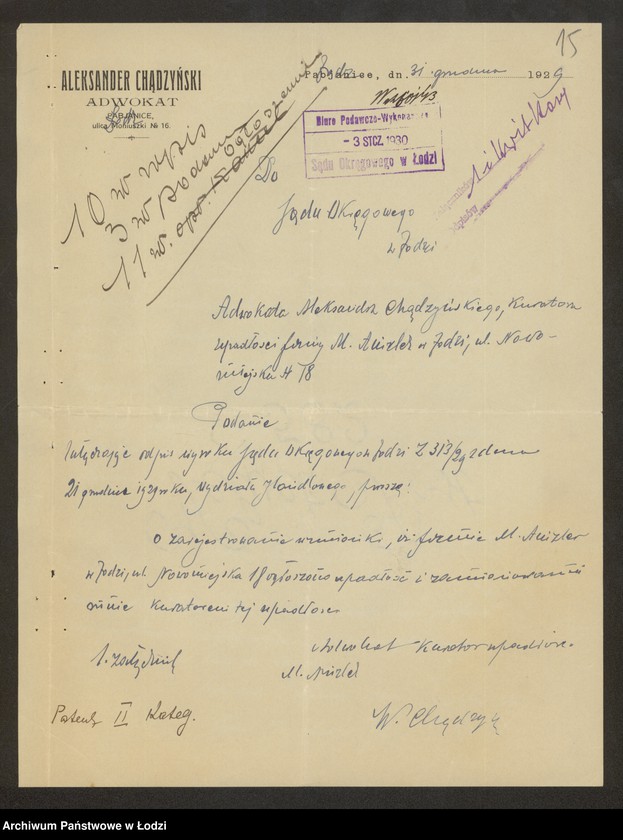 15
ALEKSANDER CHĄDZYŃSKI
ADWOKAT
PABJANICE,
ulica Moniuszki № 16.
Łódź
Pabjanice, dn. 31 grudnia 1929
Biuro Podawczo-Wykonawcze
- 3 STCZ. 1930
Sądu Okręgowego w Łodzi
10 zł wpis
3 zł podanie
11 zł. opł. ogłoszenia
Do
Sądu Okręgowego
w Łodzi
Adwokata Aleksandra Chądzyńskiego, Kuratora
upadłości firmy M. w Łodzi, ul. Nowo-
miejska № 18
Podanie
Załączając odpis wyroku Sądu Okręgowego w Łodzi Z 313/29 z dnia
21 grudnia 1929 roku, Wydziału Handlowego, proszę:
o zarejestrowanie wzmianki, iż firmie M.
w Łodzi, ul. Nowomiejska 18 ogłoszono upadłość i zamianowaniu
mnie kuratorem tej upadłości
1. załącznik
Adwokat Kurator upadłości
M.
Patent II Kateg.
Archiwum Państwowe w Łodzi